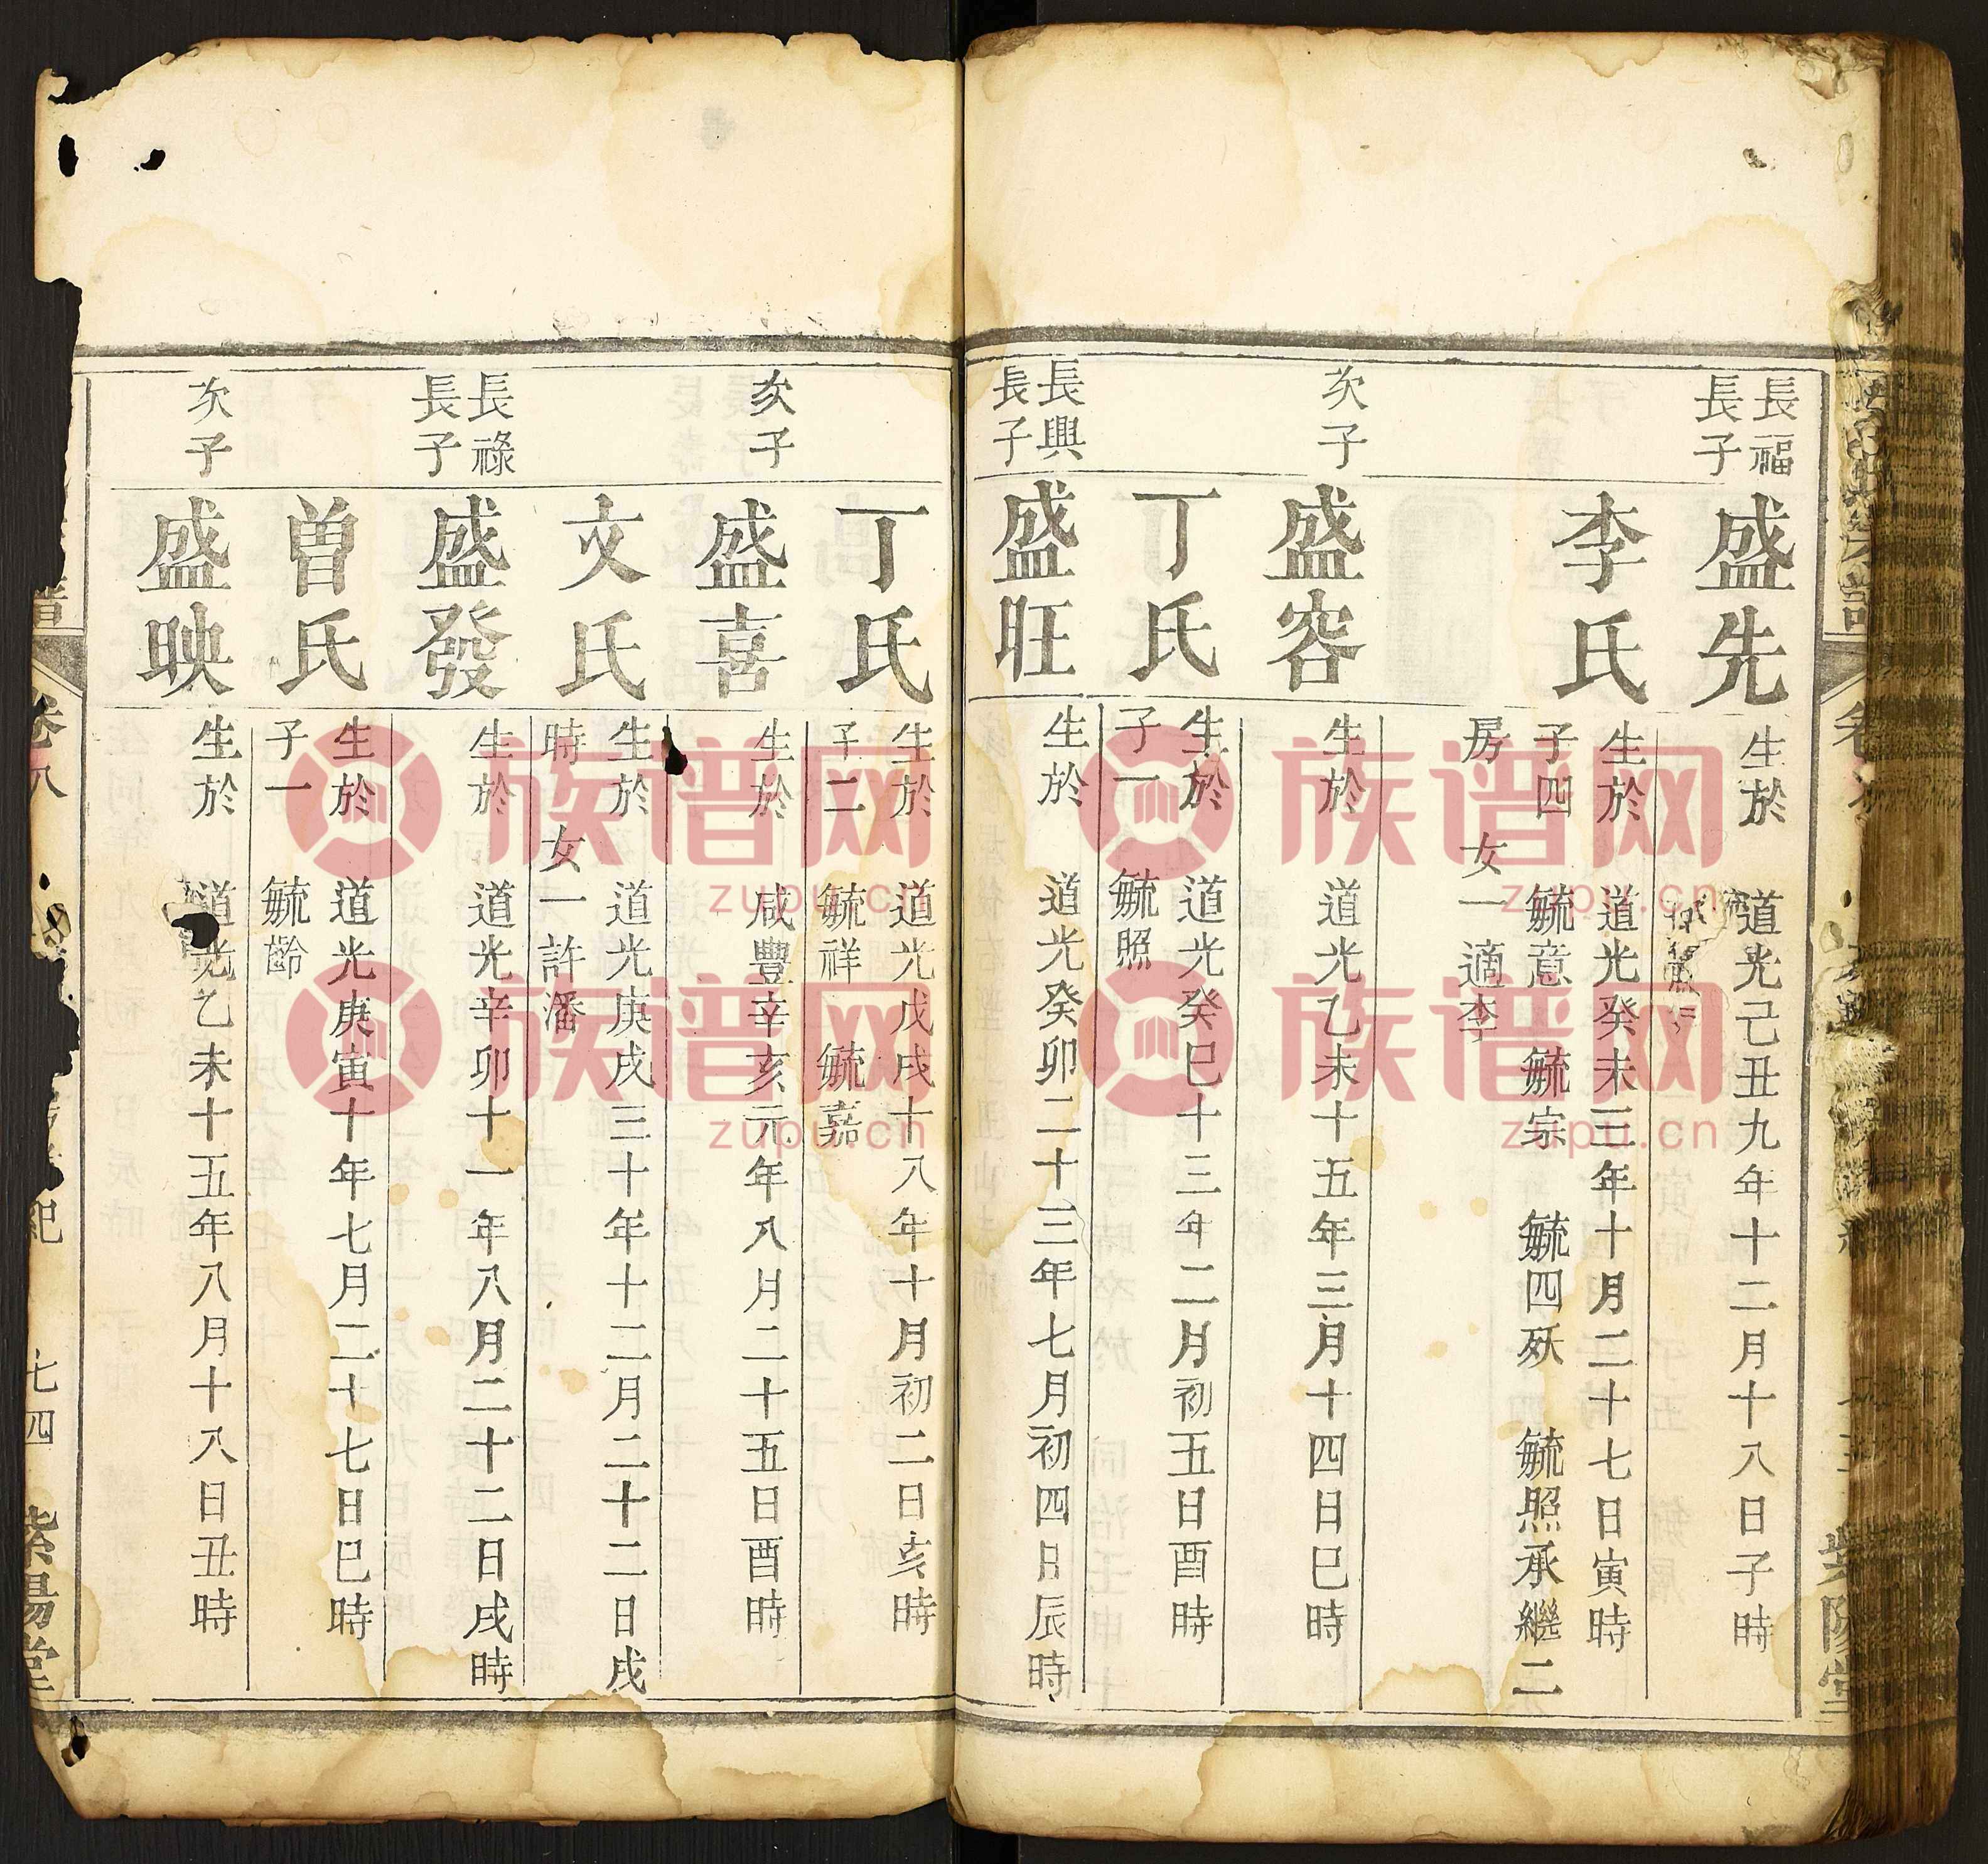 長福
長子
盛先
生於 道光己丑九年十二月十八日子時
李氏
生於 道光癸未三年十月二十七日寅時
子四 毓意 毓宗 毓四殀 毓照承繼二
房 女一適李
次子
盛容
生於 道光乙未十五年三月十四日巳時
丁氏
生於 道光癸巳十三年二月初五日酉時
子一 毓照
長興
長子
盛旺
生於 道光癸卯二十三年七月初四日辰時
丁氏
生於 道光戊戌十八年十月初二日亥時
子二 毓祥 毓嘉
次子
盛喜
生於 咸豐辛亥元年八月二十五日酉時
文氏
生於 道光庚戌三十年十二月二十二日戌
時 女一許潘
長祿
長子
盛發
生於 道光辛卯十一年八月二十二日戌時
曾氏
生於 道光庚寅十年七月二十七日巳時
子一 毓齡
次子
盛映
生於 道光乙未十五年八月十八日丑時
譜 卷八 紀 七四 紫陽堂
族谱网
zupu.cn
族谱网
zupu.cn
族谱网
zupu.cn
族谱网
zupu.cn